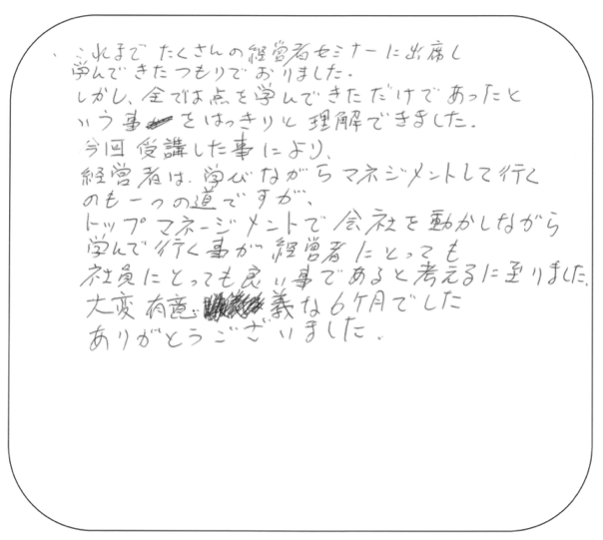 これまで たくさんの経営者セミナーに出席し
学んできたつもりでおりました。
しかし、全ては点を学んできただけであったと
いう事をはっきりと理解できました。
今回受講した事により、
経営者は、学びながらマネジメントして行く
のも一つの道ですが、
トップマネージメントで会社を動かしながら
学んで行く事が経営者にとっても
社員にとっても良い事であると考えるに至りました。
大変有意義な6ヶ月でした
ありがとうございました。